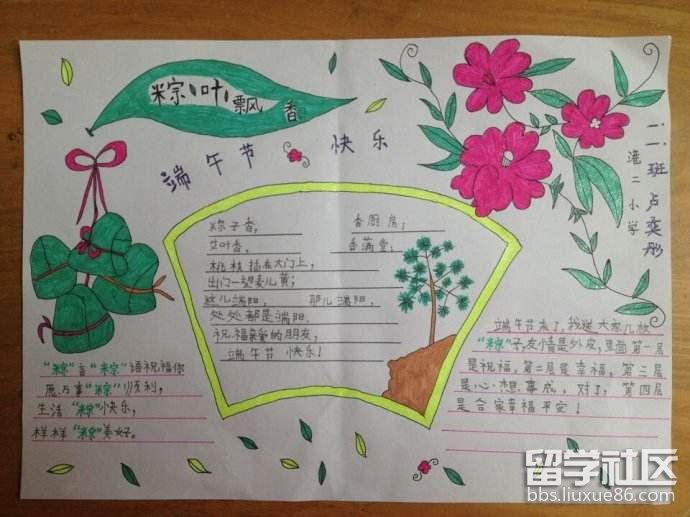 粽叶飘香
端午节 快乐
二、二班 卢奕彤
淮二小学
粽子香， 香厨房；
艾叶香， 香满堂；
桃枝插在大门上，
出门一望麦儿黄；
这儿端阳， 那儿端阳，
处处都是端阳，
祝福亲爱的朋友，
端午节 快乐！
"粽"言"粽"语祝福你
愿万事"粽"顺利，
生活"粽"快乐，
样样"粽"美好。
端午节来了，我送大家几枚
"粽"子，友情是外皮，里面第一层
是祝福，第二层是幸福，第三层
是心想事成，对了，第四层
是合家幸福平安！
留学社区
bbs.liuxue86.com